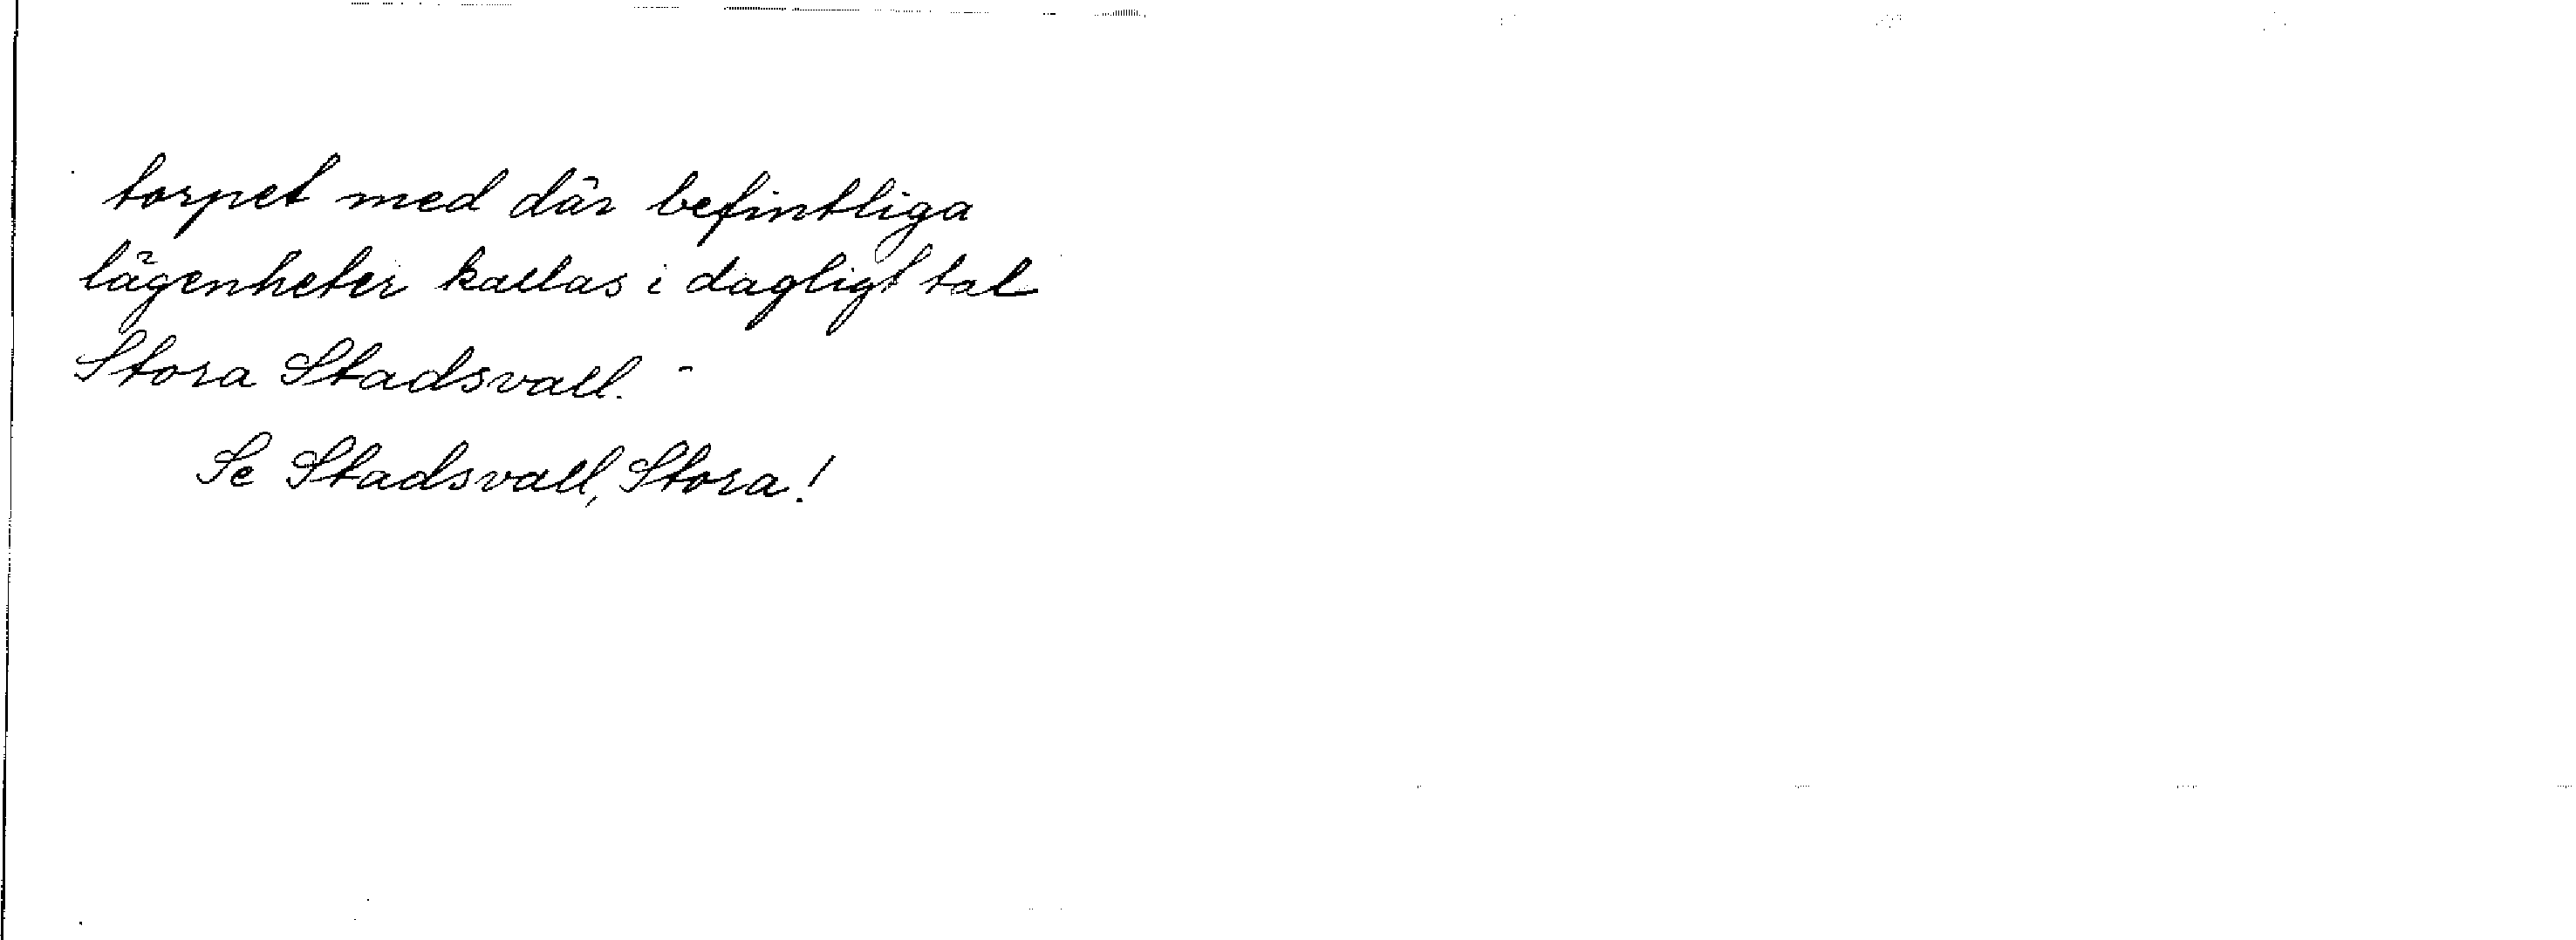 torpet med där befintliga
lägenheter kallas i dagligt tal
Stora Stadsvall. -
Se Stadsvall, Stora!